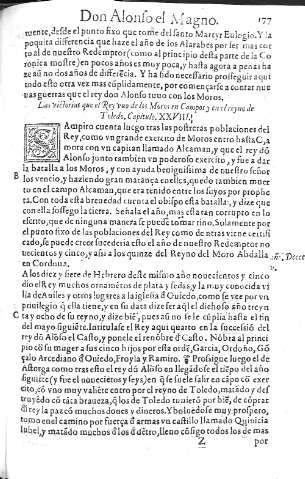 Don Alonso el Magno. 177
tuente, desde el punto fixo que tome del santo Martyr Eulogio. Y la
poquita differencia que haze el año de los Alarabes por ser mas cor
to al de nuestro Redemptor (como al principio desta parte de la Co
ronica mostre) en pocos años es muy poca, y hasta agora a penas ha
ze aũ no dos años de differẽcia. Y ha sido necessario proseguir aqui
todo esta otra vez mas cũplidamente, por començarse a contar nue
uas guerras que el rey don Alonso tuuo con los Moros.
Las victorias que el Rey vuo de los Moros en Campos y en el reyno de
Toledo, Capitulo. XXVIII.
SAmpiro cuenta luego tras las postreras poblaciones del
Rey, como vn grande exercito de Moros entro hasta Ça
mora con vn capitan llamado Alcaman, y que el rey dõ
Alonso junto tambien vn poderoso exercito, y fue a dar
B la batalla a los Moros, y con ayuda benignissima de nuestro señor
los vencio, y haziendo gran matança en ellos, quedo tambien muer
to en el campo Alcaman, que era tenido entre los suyos por prophe
ta. Con toda esta breuedad cuenta el obispo esta batalla, y dize que
con ella sossego la tierra. Señala el año, mas esta tan corrupto en lo
escrito, que en ninguna manera se puede tomar tino. Solamente por
el punto fixo de las poblaciones del Rey como de atras viene certifi
cado, se puede creer sucederia esto el año de nuestro Redemptor no
uecientos y cinco, y assi a los quinze del Reyno del Moro Abdalla
en Cordoua.
A los diez y siete de Hebrero deste mismo año nouecientos y cinco
dio el Rey muchos ornamẽtos de plata y sedas, y la muy conocida vi
lla de Auiles y otros lugares a la iglesia d̃ Ouiedo, como se vee por vn
priuilegio q̃ ella tiene, y en su data dize ser aq̃l el dichoso año treyn
C ta y ocho de su reyno, y dize biẽ, pues aũ no se le cũplia hasta el fin
del mayo siguiẽte. Intitulase el Rey aqui quarto en la successiõ del
rey dõ Alõso el Casto, y ponele el renõbre d̃ Casto. Nõbra al princi
pio cõ su muger a sus cinco hijos por esta ordẽ, Garcia, Ordoño, Gõ
çalo Arcediano d̃ Ouiedo, Froyla y Ramiro. Prosigue luego el de
Astorga como tras esto el rey dõ Alõso en llegãdo el tiẽpo del año
siguiẽte (y fue el nouecientos y seys,) en q̃ se suele salir en cãpo cõ exer
cito, cõ vno muy valiẽte entro por el reyno de Toledo, matãdo y des
truyẽdo cõ tãta braueza, q̃ los de Toledo tuuierõ por biẽ, de cõprar
d̃l rey la paz cõ muchos dones y dineros. Y boluiẽdose muy prospero,
tomo en el camino por fuerça d̃ armas vn castillo llamado Quinicia
lubel, y matãdo muchos d̃ los d̃ dẽtro, lleuo cõsigo todos los de mas
Z por